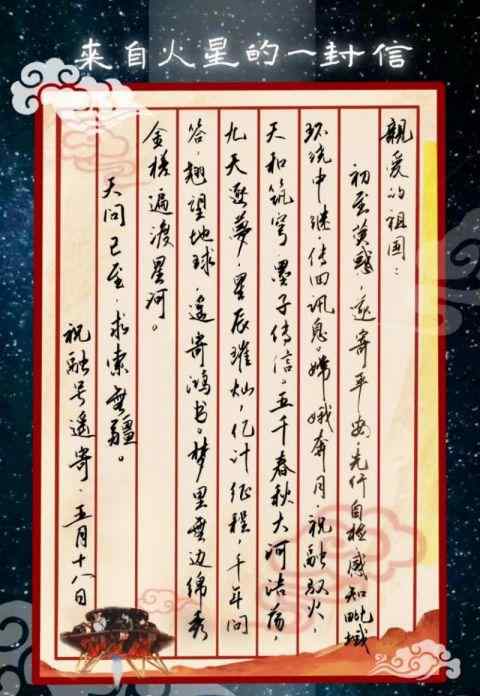 来自火星的一封信
親爱的祖国：
初至荧惑，遥寄平安，先行自检感知毗域
环绕中继，传回讯息。嫦娥奔月，祝融驭火，
天和筑穹，墨子传信。五千春秋大河浩荡，
九天逐夢，星辰璀灿，亿计征程，千年问
答，翘望地球，遥寄鸿书。梦里無边锦秀
金槎遍渡星河。
天问已至，求索無疆。
祝融号遥寄，五月十八日